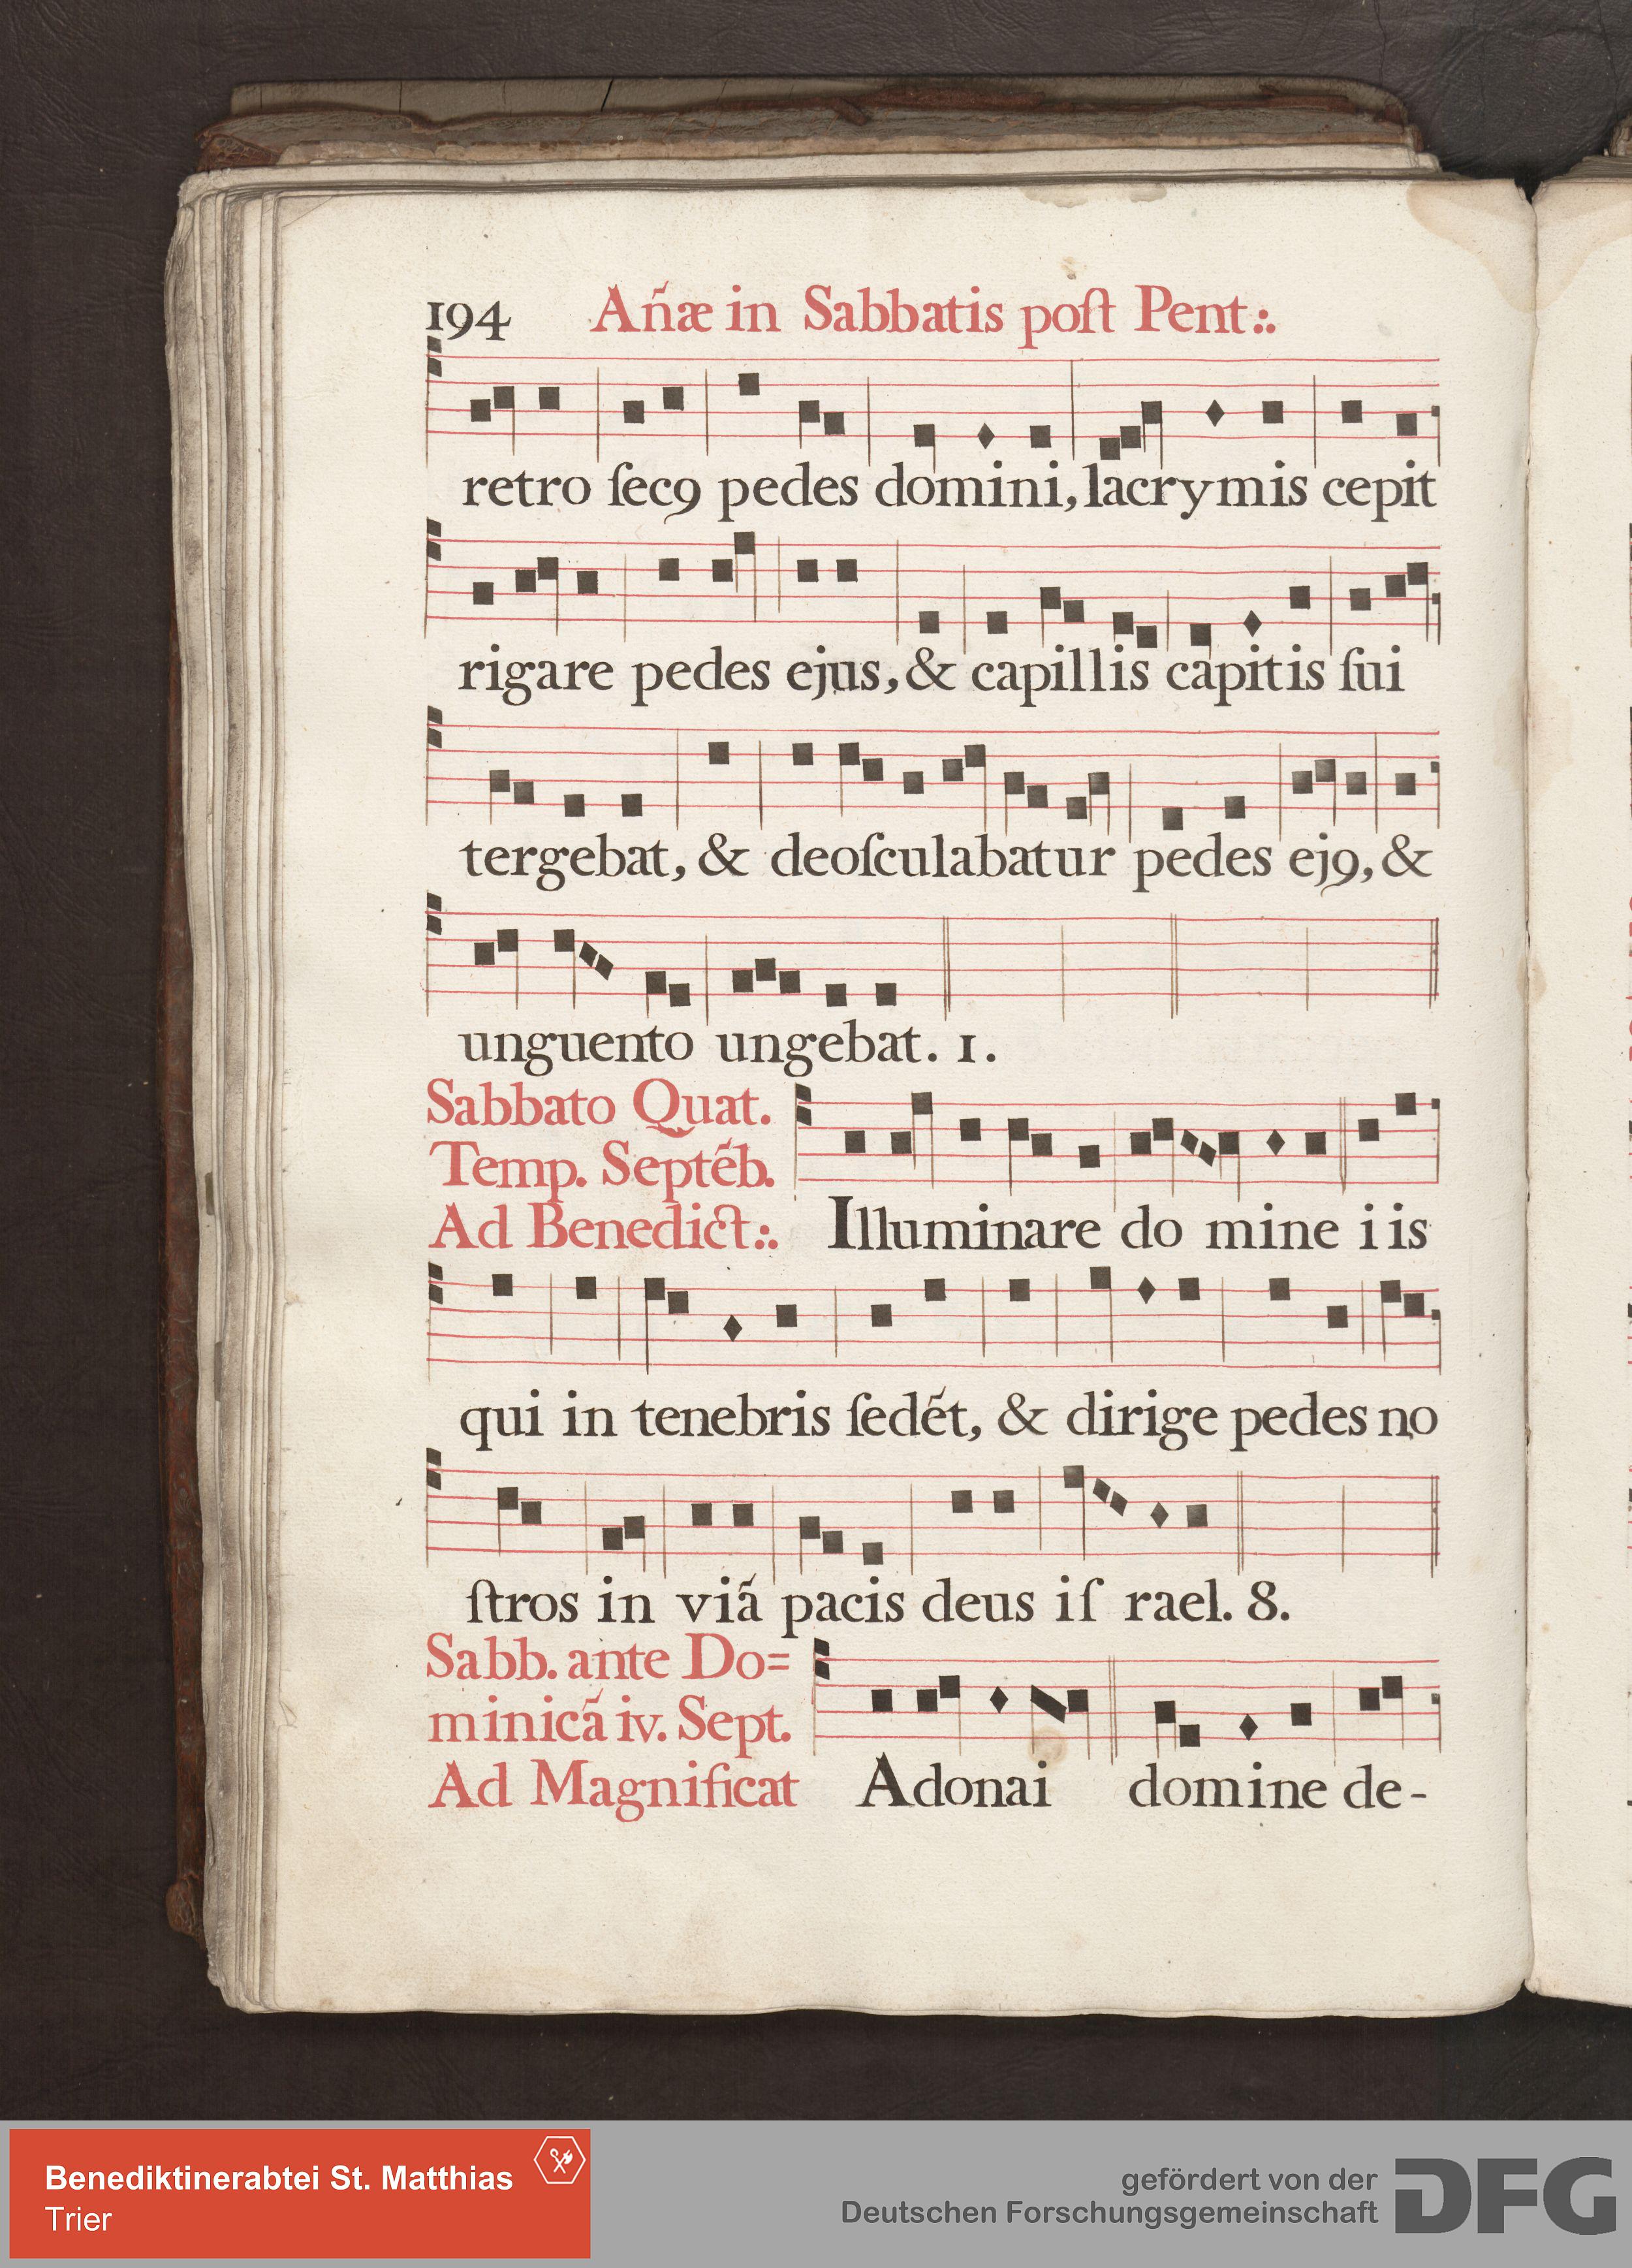 194 Añæ in Sabbatis poſt Pent:.
retro ſecꝯ pedes domini, lacrymis cepit
rigare pedes ejus, & capillis capitis ſui
tergebat, & deoſculabatur pedes ejꝯ, &
unguento ungebat. 1.
Sabbato Quat.
Temp. Septẽb.
Ad Benedict:. Illuminare do mine i is
qui in tenebris ſedẽt, & dirige pedes no
ſtros in viã pacis deus iſ rael. 8.
Sabb. ante Do=
minicã iv. Sept.
Ad Magnificat Adonai domine de-
Benediktinerabtei St. Matthias
Trier
gefördert von der
Deutschen Forschungsgemeinschaft
DFG